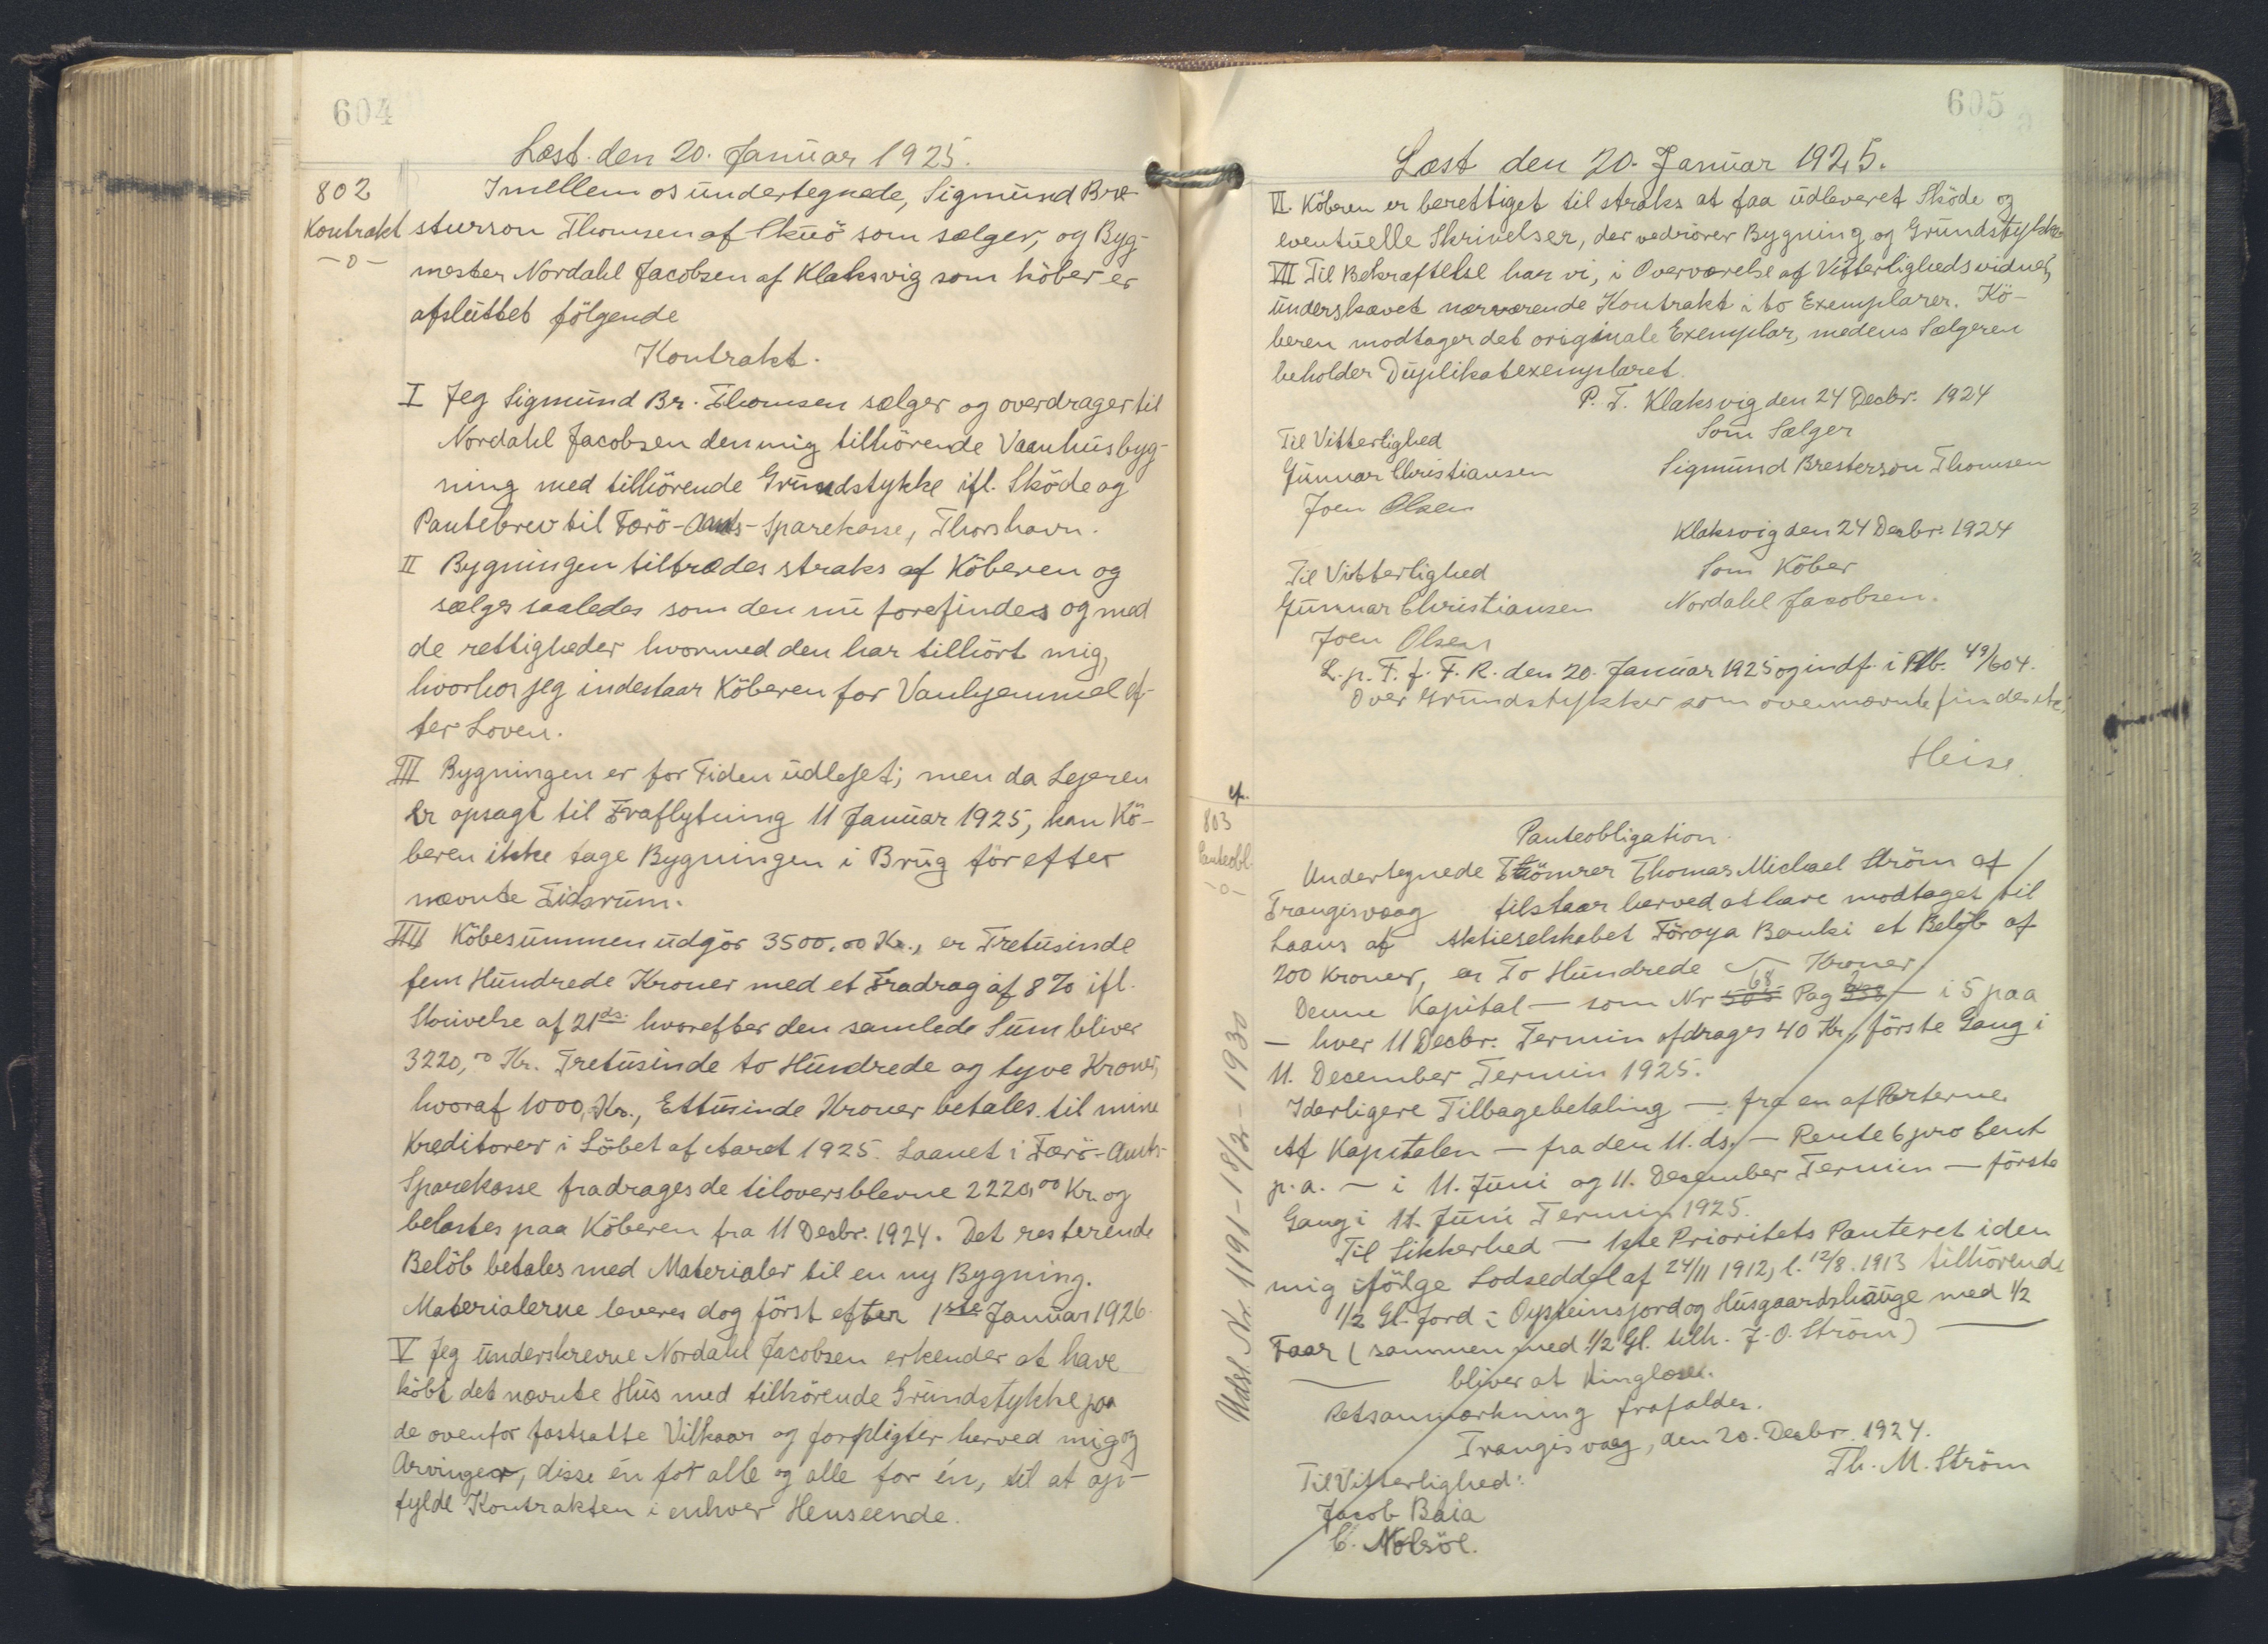 604
Læst den 20. Januar 1925.
802
Kontrakt
-o-
Imellem os undertegnede, Sigmund Bre-
stursson Thomsen af Skuö som sælger, og Byg-
mester Nordahl Jacobsen af Klaksvig som köber er
afsluttet fölgende
Kontrakt.
I Jeg Sigmund Br. Thomsen sælger og overdrager til
Nordahl Jacobsen den mig tilhörende Vaanhusbyg-
ning med tilhörende Grundstykke ifl. Sköde og
Pantebrev til Færö-Amts-Sparekasse, Thorshavn.
II Bygningen tiltrædes straks af Köberen og
sælges saaledes som den nu forefindes og med
de rettigheder hvormed den har tilhört mig,
hvorhos jeg indestaar Köberen for Vanhjemmel ef-
ter Loven.
III Bygningen er for Tiden udlejet; men da Lejeren
er opsagt til Fraflytning 11 Januar 1925, kan Kö-
beren ikke tage Bygningen i Brug för efter
nævnte Tidsrum.
IIII Köbesummen udgör 3500,00 Kr., er Tretusinde
fem Hundrede Kroner med et Fradrag af 8% ifl.
Skrivelse af 21ds. hvorefter den samlede Sum bliver
3220,00 Kr. Tretusinde to Hundrede og tyve Kroner,
hvoraf 1000,Kr., Ettusinde Kroner betales til mine
Kreditorer i Löbet af Aaret 1925. Laanet i Færö-Amts-
Sparekasse fradrages de tiloversblevne 2220,00 Kr. og
belastes paa Köberen fra 11 Decbr. 1924. Det resterende
Belöb betales med Materialer til en ny Bygning.
Materialerne leveres dog först efter 1ste Januar 1926.
V Jeg underskrevne Nordahl Jacobsen erkender at have
köbt det nævnte Hus med tilhörende Grundstykke paa
de ovenfor fastsatte Vilkaar og forpligter herved mig og
Arvinger, disse én for alle og alle for én, til at op-
fylde Kontrakten i enhver Henseende.
605
Læst den 20. Januar 1925.
VI Köberen er berettiget til straks at faa udleveret Sköde og
eventuelle Skrivelser, der vedrörer Bygning og Grundstykke
VII Til Bekræftelse har vi, i Overværelse af Vitterlighedsvidner,
underskrevet nærværende Kontrakt i to Exemplarer. Kö-
beren modtager det originale Exemplar, medens Sælgeren
beholder Duplikatexemplaret.
P. T. Klaksvig den 24 Decbr. 1924
Til Vitterlighed
Som Sælger
Gunnar Christiansen
Sigmund Bresterson Thomsen
Joen Olsen
Klaksvig den 24 Decbr. 1924
Til Vitterlighed
Som Köber
Gunnar Christiansen
Nordahl Jacobsen.
Joen Olsen
L. p. T. f. F. R. den 20. Januar 1925 og indf. i Ptb. 49/604.
Over Grundstykker som ovennævnte findes
Heise.
803
Panteobl.
-o-
Panteobligation.
Undertegnede Tömrer Thomas Michael Ström af
Trangisvaag tilstaar herved at have modtaget til
Laans af Aktieselskabet Föroya Banki et Belöb af
200 Kroner, er To Hundrede Kroner
Denne Kapital — som Nr 505 68 Pag 338 — i 5 paa
— hver 11 Decbr. Termin afdrages 40 Kr., förste Gang i
11. December Termin 1925.
Yderligere Tilbagebetaling — fra en af Parterne
Af Kapitalen — fra den 11. ds. — Rente 6 pro Cent
p.a. — i 11. Juni og 11. December Termin — förste
Gang i 11. Juni Termin 1925.
Til Sikkerhed — 1ste Prioritets Panteret i den
mig ifölge Lodseddel af 24/11 1912, l. 12/8. 1913 tilhörende
1/2 Gl. Jord i Oysteinsjord og Husgaardshauge med 1/2
Faar (sammen med 1/2 Gl. tilh. J. O. Ström)
bliver at tinglæse.
Retsanmærkning frafaldes.
Trangisvaag, den 20. Decbr. 1924.
Th. M. Ström
Til Vitterlighed:
Jacob Baia
C. Nolsöe.
Udsl. Nr. 1191 - 18/2 - 1930